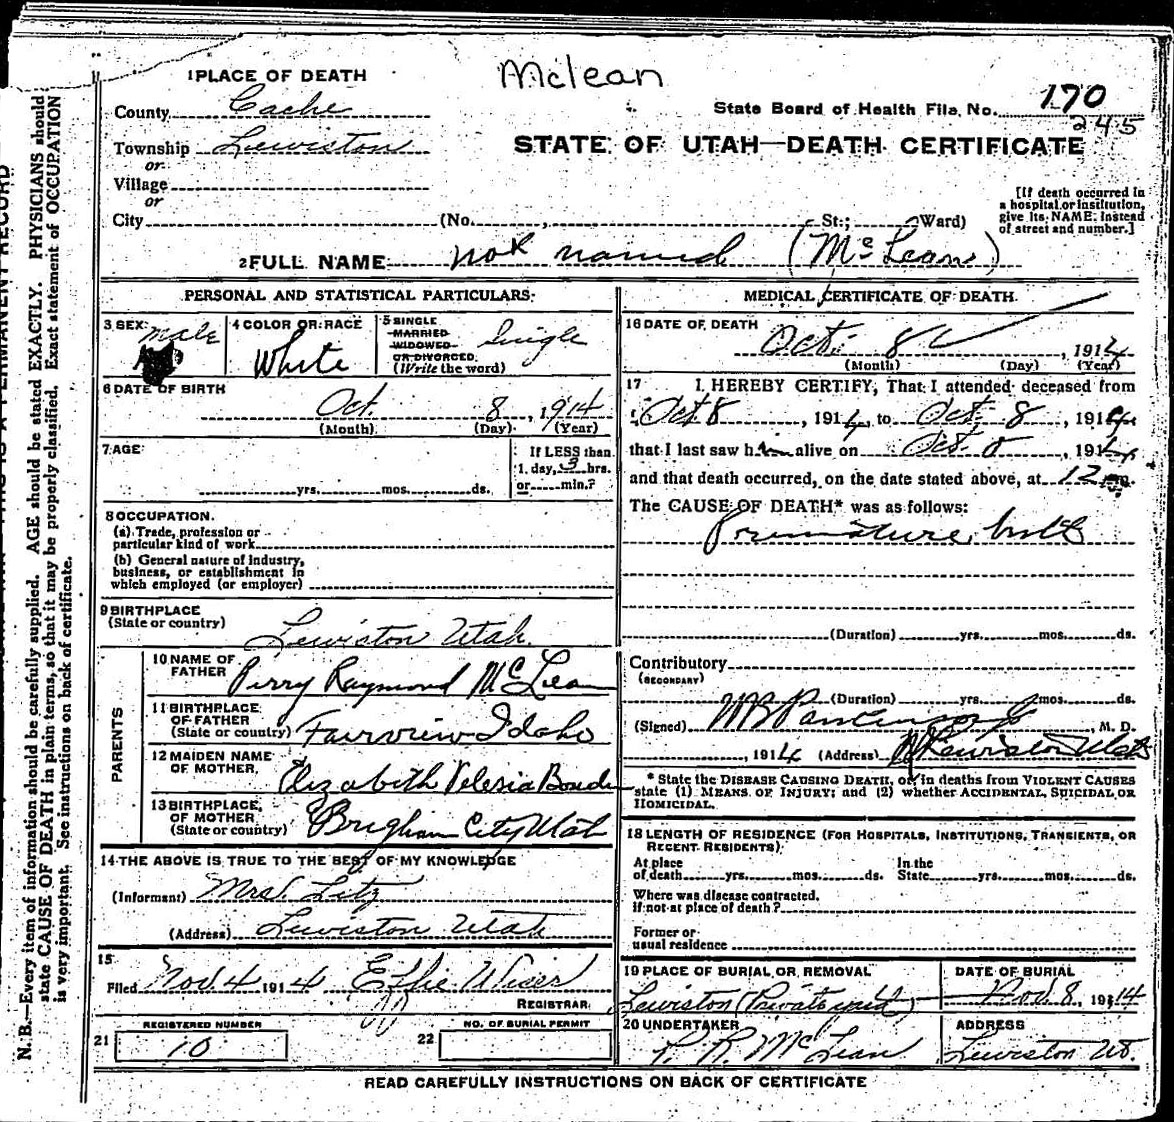 Mclean
1 PLACE OF DEATH
County Cache
State Board of Health File No. 170
245
Township Lewiston
STATE OF UTAH—DEATH CERTIFICATE
or
Village
or
City (No. , St.; Ward)
[If death occurred in
a hospital or institution,
give its NAME instead
of street and number.]
2 FULL NAME not named (McLean)
PERSONAL AND STATISTICAL PARTICULARS.
3 SEX male
4 COLOR OR RACE White
5 SINGLE
MARRIED
WIDOWED
OR DIVORCED.
(Write the word) Single
6 DATE OF BIRTH
Oct. 8, 1914
(Month) (Day) (Year)
7 AGE
yrs. mos. ds.
If LESS than
1 day, 3 hrs.
or min.?
8 OCCUPATION.
(a) Trade, profession or
particular kind of work
(b) General nature of industry,
business, or establishment in
which employed (or employer)
9 BIRTHPLACE
(State or country) Lewiston Utah.
PARENTS
10 NAME OF
FATHER Perry Raymond McLean
11 BIRTHPLACE
OF FATHER
(State or country) Fairview Idaho
12 MAIDEN NAME
OF MOTHER. Elizabeth Velesia
13 BIRTHPLACE
OF MOTHER
(State or country) Brigham City Utah
14 THE ABOVE IS TRUE TO THE BEST OF MY KNOWLEDGE
(Informant) Mrs. Litz
(Address) Lewiston Utah
15
Filed Nov. 4 1914 Effie Wiser
REGISTRAR
REGISTERED NUMBER
21 10
NO. OF BURIAL PERMIT
22
MEDICAL CERTIFICATE OF DEATH.
16 DATE OF DEATH
Oct. 8, 1914
(Month) (Day) (Year)
17 I HEREBY CERTIFY, That I attended deceased from
Oct 8, 1914, to Oct. 8, 1914
that I last saw him alive on Oct. 8, 1914
and that death occurred, on the date stated above, at 12 m.
The CAUSE OF DEATH* was as follows:
Premature birth
(Duration) yrs. mos. ds.
Contributory
(SECONDARY)
(Duration) yrs. mos. ds.
(Signed) M. D.
, 1914 (Address) Lewiston Utah
* State the DISEASE CAUSING DEATH, or, in deaths from VIOLENT CAUSES
state (1) MEANS OF INJURY; and (2) whether ACCIDENTAL, SUICIDAL OR
HOMICIDAL.
18 LENGTH OF RESIDENCE (FOR HOSPITALS, INSTITUTIONS, TRANSIENTS, OR
RECENT RESIDENTS).
At place
of death yrs. mos. ds.
In the
State yrs. mos. ds.
Where was disease contracted.
if not at place of death?
Former or
usual residence
19 PLACE OF BURIAL OR REMOVAL
Lewiston (Private yard)
DATE OF BURIAL
Nov. 8, 1914
20 UNDERTAKER
P. R. McLean
ADDRESS
Lewiston Ut.
READ CAREFULLY INSTRUCTIONS ON BACK OF CERTIFICATE
N. B.—Every item of information should be carefully supplied. AGE should be stated EXACTLY. PHYSICIANS should
state CAUSE OF DEATH in plain terms, so that it may be properly classified. Exact statement of OCCUPATION
is very important. See instructions on back of certificate.